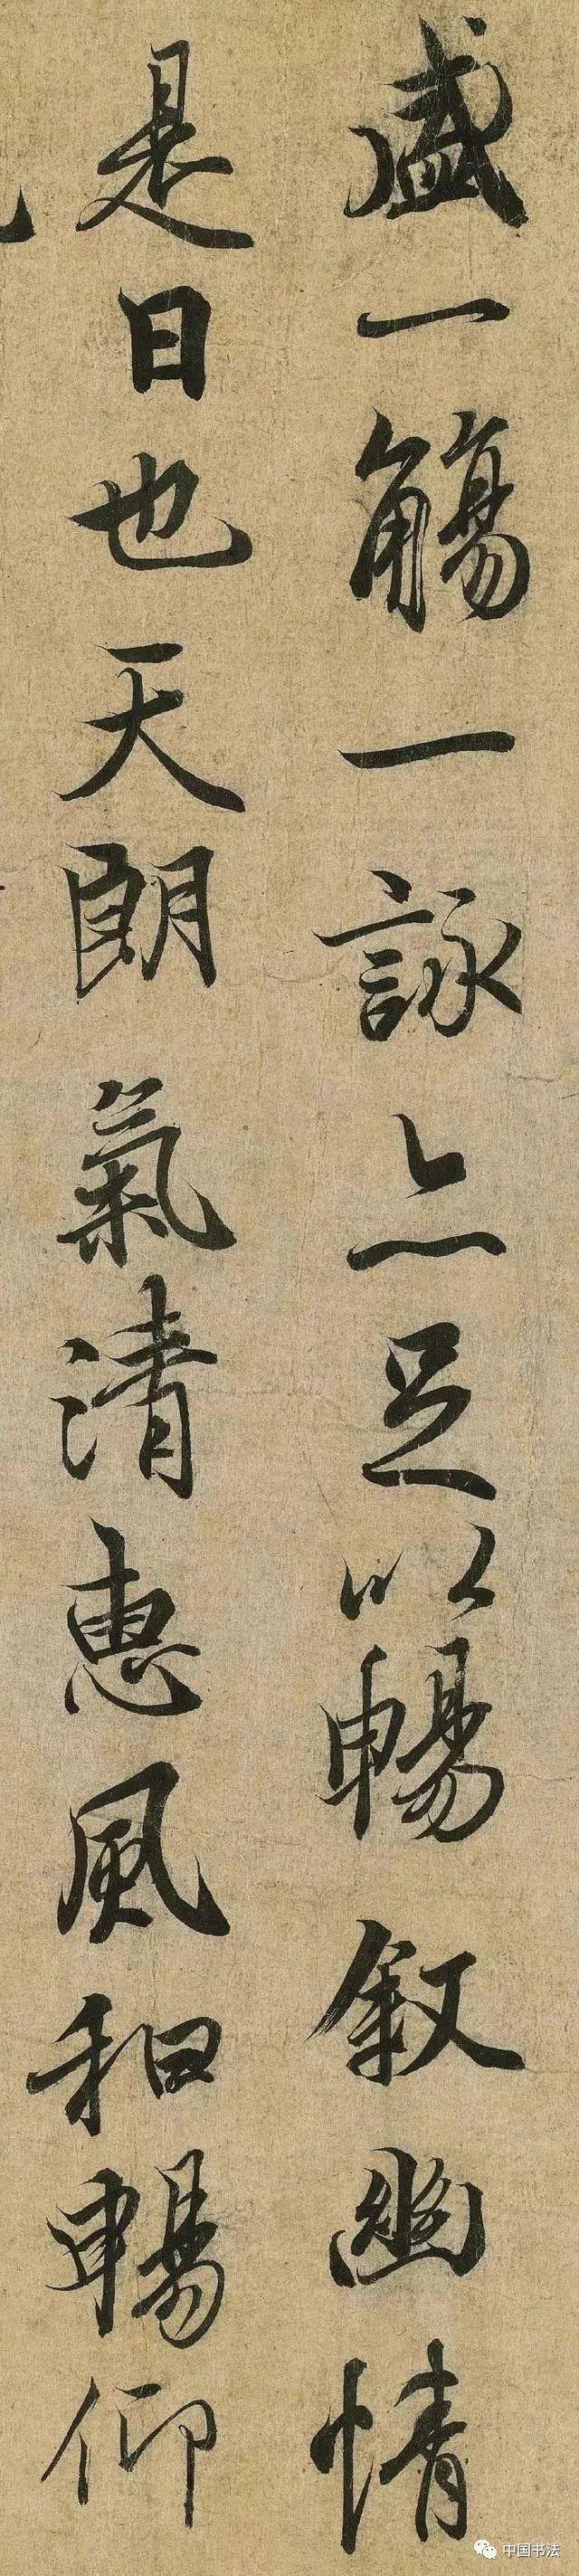 盛一觴一詠亦足以暢敘幽情
是日也天朗氣清惠風和暢仰
中国书法